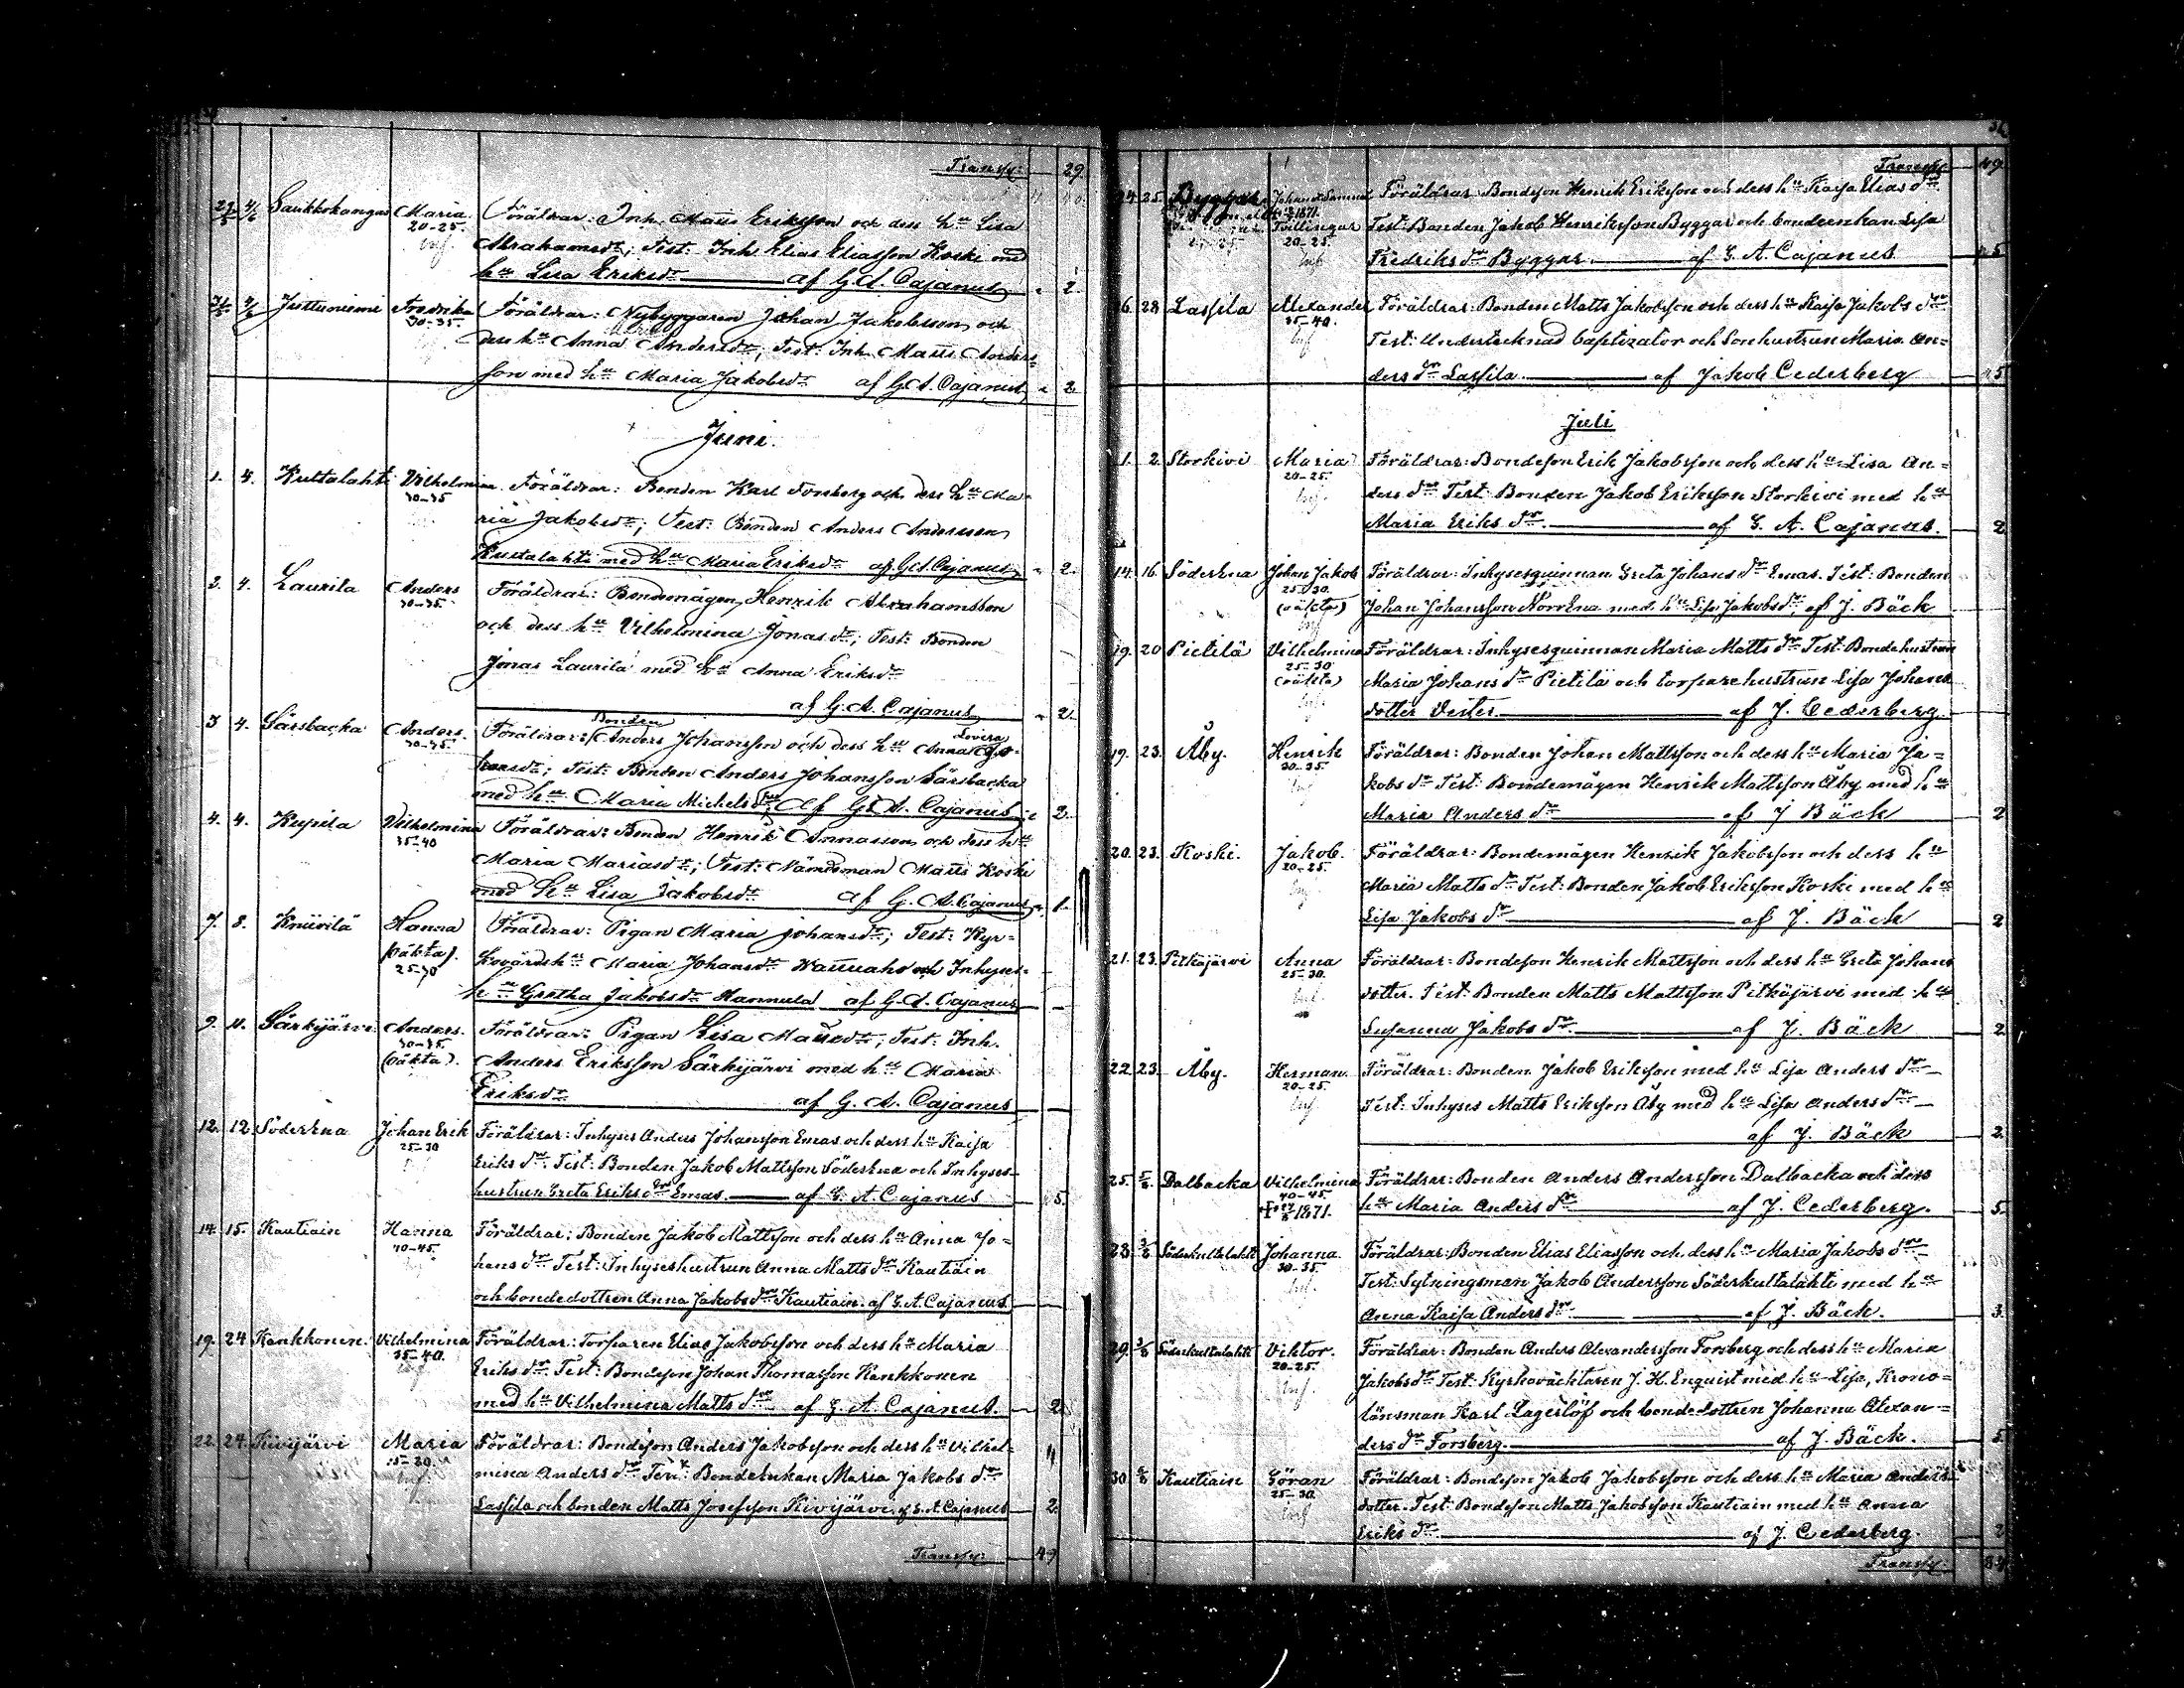 Transp: 29
29/5 4/6 Saukkokangas Maria Föräldrar: Inh. Matts Eriksson och dess hu Lisa
20-25. Abrahamsdr; Test: Inh. Elias Eliasson Koski med
hu Lisa Eriksdr af G.A. Cajanus 2
31/5 4/6 Juttuniemi Fredrika Föräldrar: Nybyggaren Johan Jakobsson och
30-35. dess hu Anna Andersdr; Test: Inh. Matts Anders-
son med hu Maria Jakobsdr af G.A. Cajanus 2
Juni.
1. 4. Kultalahti Vilhelmina Föräldrar: Bonden Karl Forsberg och dess hu Ma-
30-35 ria Jakobsdr; Test: Bonden Anders Andersson
Kultalahti med hu Maria Eriksdr af G.A. Cajanus 2.
2. 4. Laurila Anders Föräldrar: Bondemågen Henrik Abrahamsson
30-35. och dess hu Vilhelmina Jonasdr; Test: Bonden
Jonas Laurila med hu Anna Eriksdr
af G.A. Cajanus 2.
3 4. Särsbacka Anders. Föräldrar: Bonden Anders Johansson och dess hu Anna Lovisa Jo-
30-35. hansdr; Test: Bonden Anders Johansson Särsbacka
med hu Maria Michelsdr; af G.A. Cajanus 2.
4. 4. Kupila Vilhelmina Föräldrar: Bonden Henrik Annasson och dess hu
35-40 Maria Mariasdr; Test: Nämdeman Matts Koski
med hu Lisa Jakobsdr af G.A. Cajanus 1.
7. 8. Kniivilä Hanna Föräldrar: Pigan Maria Johansdr; Test: Kyr-
(oäkta). kovärdshu Maria Johansdr och Inhyses-
25-30 hu Gretha Jakobsdr Hannula af G.A. Cajanus
9. 11. Särkijärvi Anders. Föräldrar: Pigan Lisa Mattsdr; Test: Inh.
30-35. (oäkta). Anders Eriksson Särkijärvi med hu Maria
Eriksdr af G.A. Cajanus
12. 12 Söderena Johan Erik Föräldrar: Inhyses Anders Johansson Emas och dess hu Kaisa
25-30 Eriks dr Test: Bonden Jakob Mattsson Söderena och Inhyses-
hustrun Greta Eriks dr Emas. af G.A. Cajanus 5.
14. 15. Kautiain Hanna Föräldrar: Bonden Jakob Mattsson och dess hu Anna Jo-
40-45. hans dr Test: Inhyseshustrun Anna Matts dr Kautiain
och bondedottren Anna Jakobs dr Kautiain. af G.A. Cajanus
19. 24 Kankkonen. Vilhelmina Föräldrar: Torparen Elias Jakobsson och dess hu Maria
35-40. Eriks dr Test: Bondeson Johan Thomasson Kankkonen
med hu Vilhelmina Matts dr af G.A. Cajanus. 2
22. 24. Kivijärvi Maria Föräldrar: Bondeson Anders Jakobsson och dess hu Vilhel-
mina Anders dr Test: Bondeenkan Maria Jakobs dr
Lassila och bonden Matts Josefsson Kivijärvi. af G.A. Cajanus 2.
Transp: 49
Transp: 49.
24. 25. Byggar Johan o Samuel Föräldrar Bondeson Henrik Eriksson och dess hu Kaisa Elias dr
Tvillingar Test: Bonden Jakob Henriksson Byggar och bondeenkan Lisa
20-25. Fredriks dr Byggar af G.A. Cajanus 5
26. 28 Lassila Alexander Föräldrar: Bonden Matts Jakobsson och dess hu Kaisa Jakobs dr
35-40. Test: Undertecknad baptizator och Sonhustrun Maria An-
ders dr Lassila af Jakob Cederberg 5
Juli
1. 2 Storkivi Maria Föräldrar: Bondeson Erik Jakobsson och dess hu Lisa An-
20-25. ders dr Test: Bonden Jakob Eriksson Storkivi med hu
Maria Eriks dr af G.A. Cajanus. 2
14. 16. Söderena Johan Jakob Föräldrar: Inhysesquinnan Greta Johans dr Emas. Test: Bonden
25-30. (oäkta) Johan Johansson Norrena med hu Lisa Jakobsdr, af J. Bäck
19. 20 Pietilä Vilhelmina Föräldrar: Inhysesquinnan Maria Matts dr Test: Bondehustrun
25-30 (oäkta) Maria Johans dr Pietilä och torparehustrun Lisa Johans
dotter Vester af J. Cederberg.
19. 23. Åby. Henrik Föräldrar: Bonden Johan Mattsson och dess hu Maria Ja-
30-35. kobs dr Test: Bondemågen Henrik Mattsson Åby med hu
Maria Anders dr af J Bäck 2
20. 23. Koski. Jakob. Föräldrar: Bondemågen Henrik Jakobsson och dess hu
20-25. Maria Matts dr Test: Bonden Jakob Eriksson Koski med hu
Lisa Jakobs dr af J. Bäck 2
21. 23. Pitkäjärvi Anna Föräldrar: Bondeson Henrik Mattsson och dess hu Greta Johans
25-30. dotter. Test: Bonden Matts Mattsson Pitkäjärvi med hu
Susanna Jakobs dr af J. Bäck 2
22. 23. Åby. Herman. Föräldrar: Bonden Jakob Eriksson med hu Lisa Anders dr
20-25. Test: Inhyses Matts Eriksson Åby med hu Lisa Anders dr
af J. Bäck 2.
25. 5/8. Dalbacka Vilhelmina Föräldrar: Bonden Anders Andersson Dalbacka och dess
40-45. 1871. hu Maria Anders dr af J. Cederberg. 5.
28. Söderkultalahti Johanna Föräldrar: Bonden Elias Eliasson och dess hu Maria Jakobs dr
30-35. Test: Sytningsman Jakob Andersson Söderkultalahti med hu
Anna Kaisa Anders dr af J. Bäck. 3.
29. Söderkultalahti Viktor. Föräldrar: Bonden Anders Alexandersson Forsberg och dess hu Maria
20-25. Jakobsdr Test: Kyrkoväcktaren J. H. Enquist med hu Lisa, Krono-
länsman Karl Lagerlöf och bondedottren Johanna Alexan-
ders dr Forsberg. af J. Bäck. 5.
30 6/8 Kautiain Göran Föräldrar: Bondeson Jakob Jakobsson och dess hu Maria Anders-
25-30. dotter. Test: Bondeson Matts Jakobsson Kautiain med hu Anna
Eriks dr af J. Cederberg. 2
Transp: 84